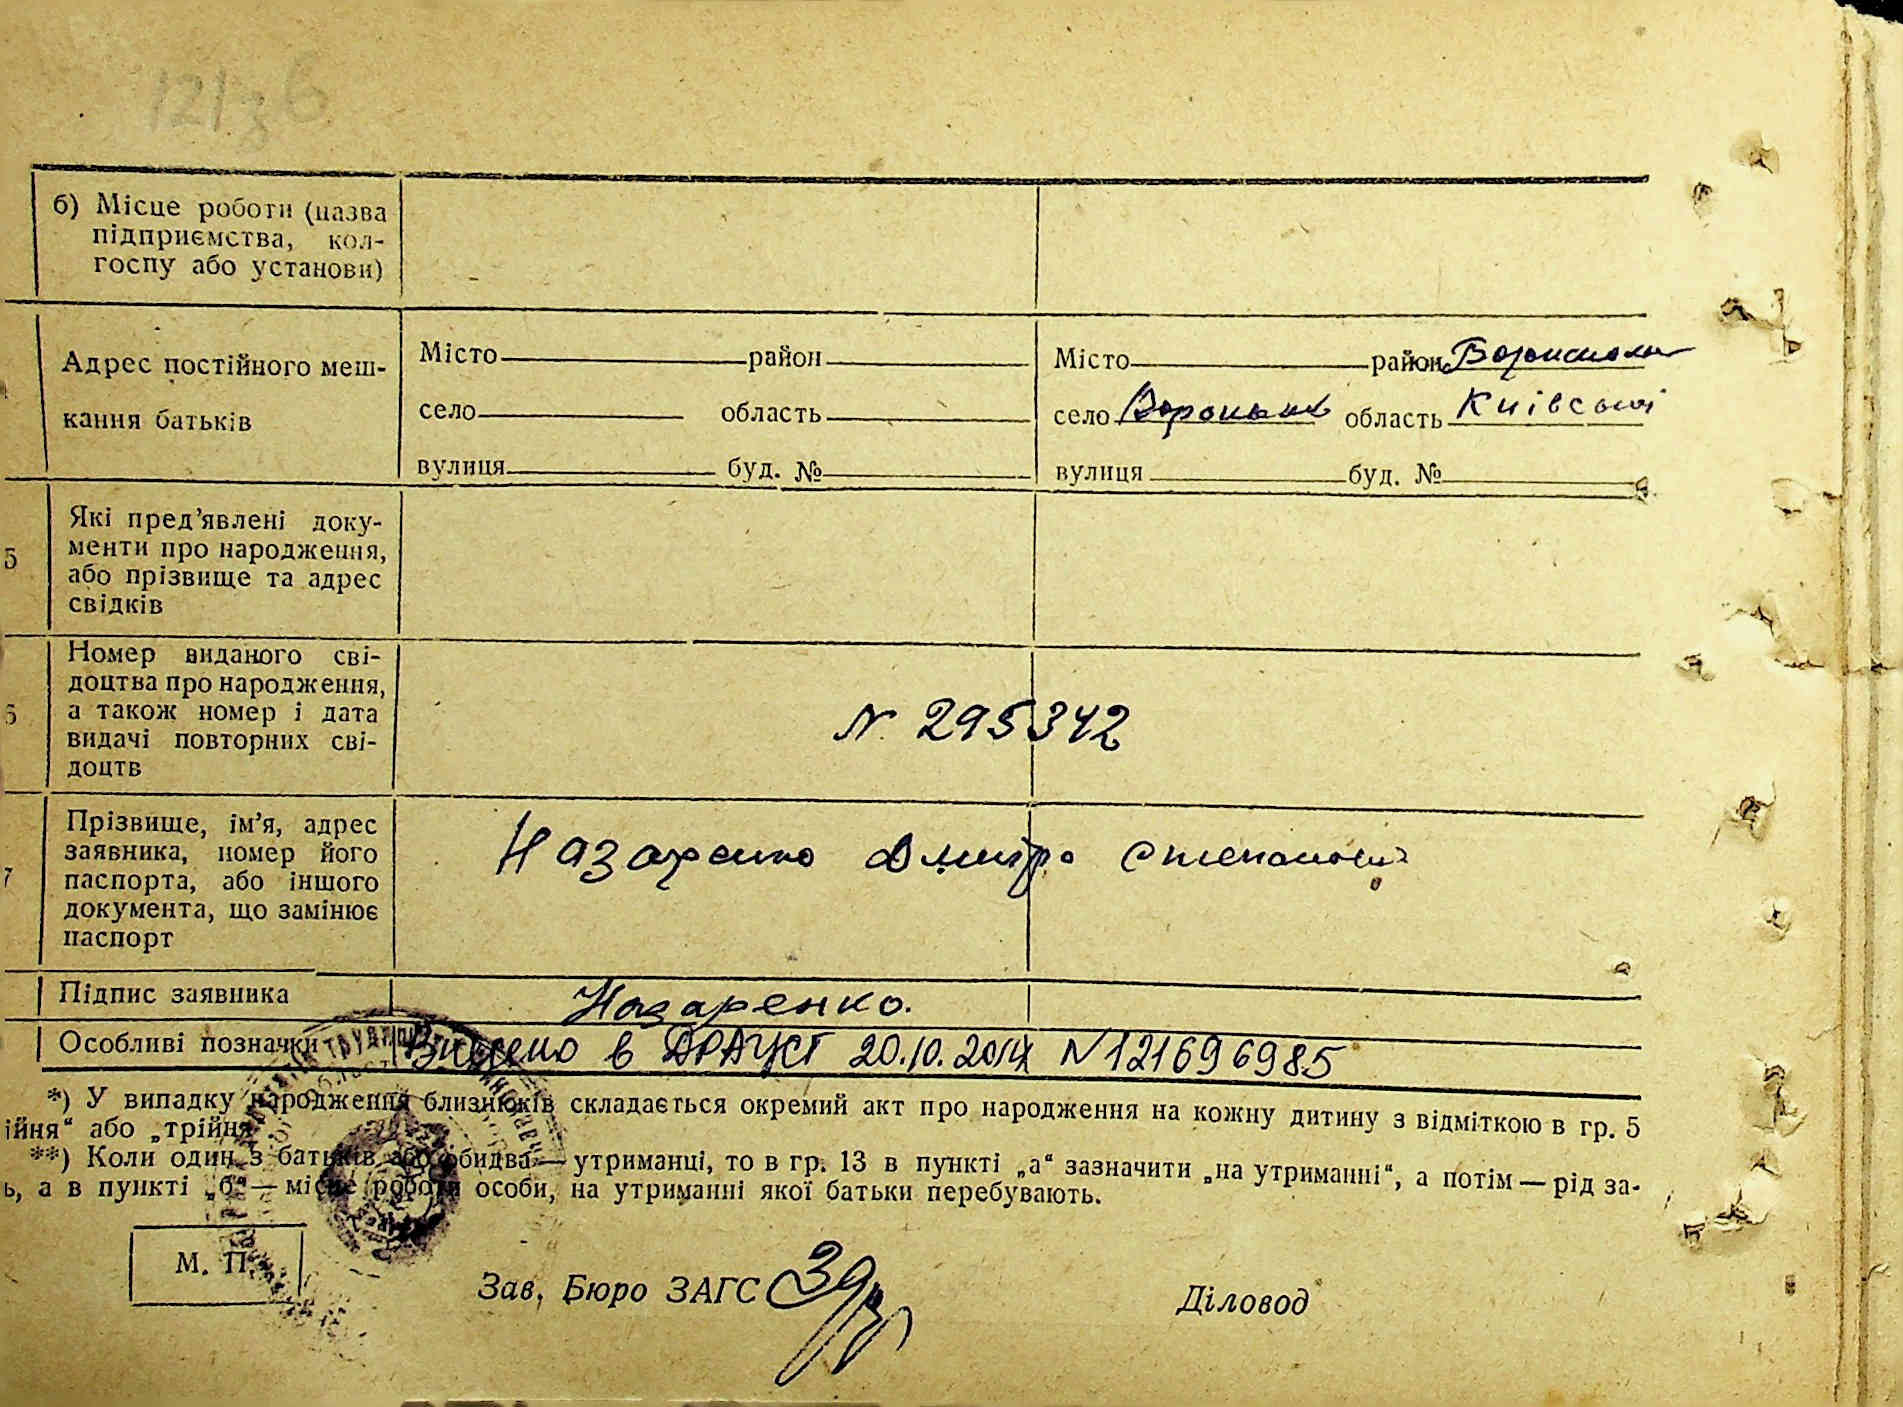 12136
б) Місце роботи (назва
підприємства, кол-
госпу або установи)
Адрес постійного меш-
кання батьків
Місто район
село область
вулиця буд. №
Місто район Бориспол
село Вороньків область Київської
вулиця буд. №
5
Які пред’явлені доку-
менти про народження,
або прізвище та адрес
свідків
Номер виданого сві-
доцтва про народження,
а також номер і дата
видачі повторних сві-
доцтв
N 295342
7
Прізвище, ім’я, адрес
заявника, номер його
паспорта, або іншого
документа, що замінює
паспорт
Назаренко Дмитро Степанович
Підпис заявника Назаренко.
Особливі позначки Внесено в ДРАЦСГ 20.10.2014 N121696985
*) У випадку народження близнюків складається окремий акт про народження на кожну дитину з відміткою в гр. 5
ійня“ або „трійня
**) Коли один з батьків або обидва — утриманці, то в гр. 13 в пункті „а“ зазначити „на утриманні“, а потім — рід за-
ь, а в пункті „б“ — місце роботи особи, на утриманні якої батьки перебувають.
М. П.
Зав. Бюро ЗАГС
Діловод